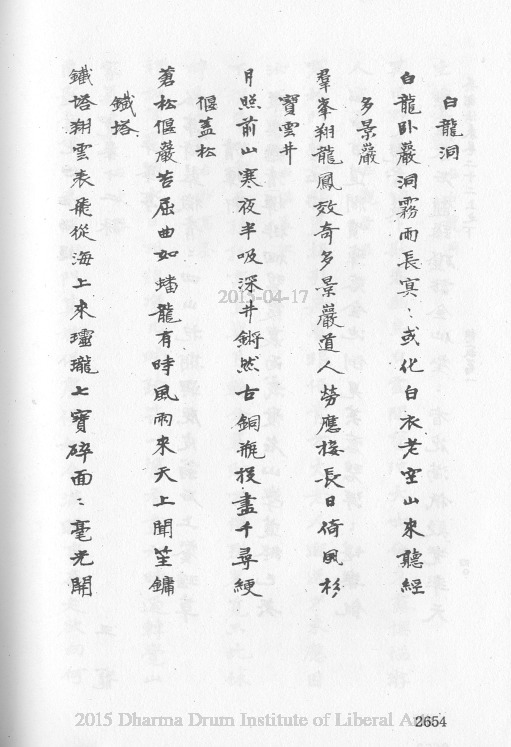 白龍洞
白龍卧巖洞霧雨長寞〻或化白衣老空山來聽經
多景巖
羣峯翔龍鳳效奇多景巖道人勞應接長日倚風杉
寶雲井
月照前山寒夜半吸深井鏘然古銅瓶投盡千尋綆
偃蓋松
蒼松偃巖苦屈曲如蟠龍有時風雨來天上聞笙鏞
鐵塔
鐵塔翔雲表飛從海上來瓏瓏七寶碎面〻毫光開
2015-04-17
2015 Dharma Drum Institute of Liberal Arts
2654